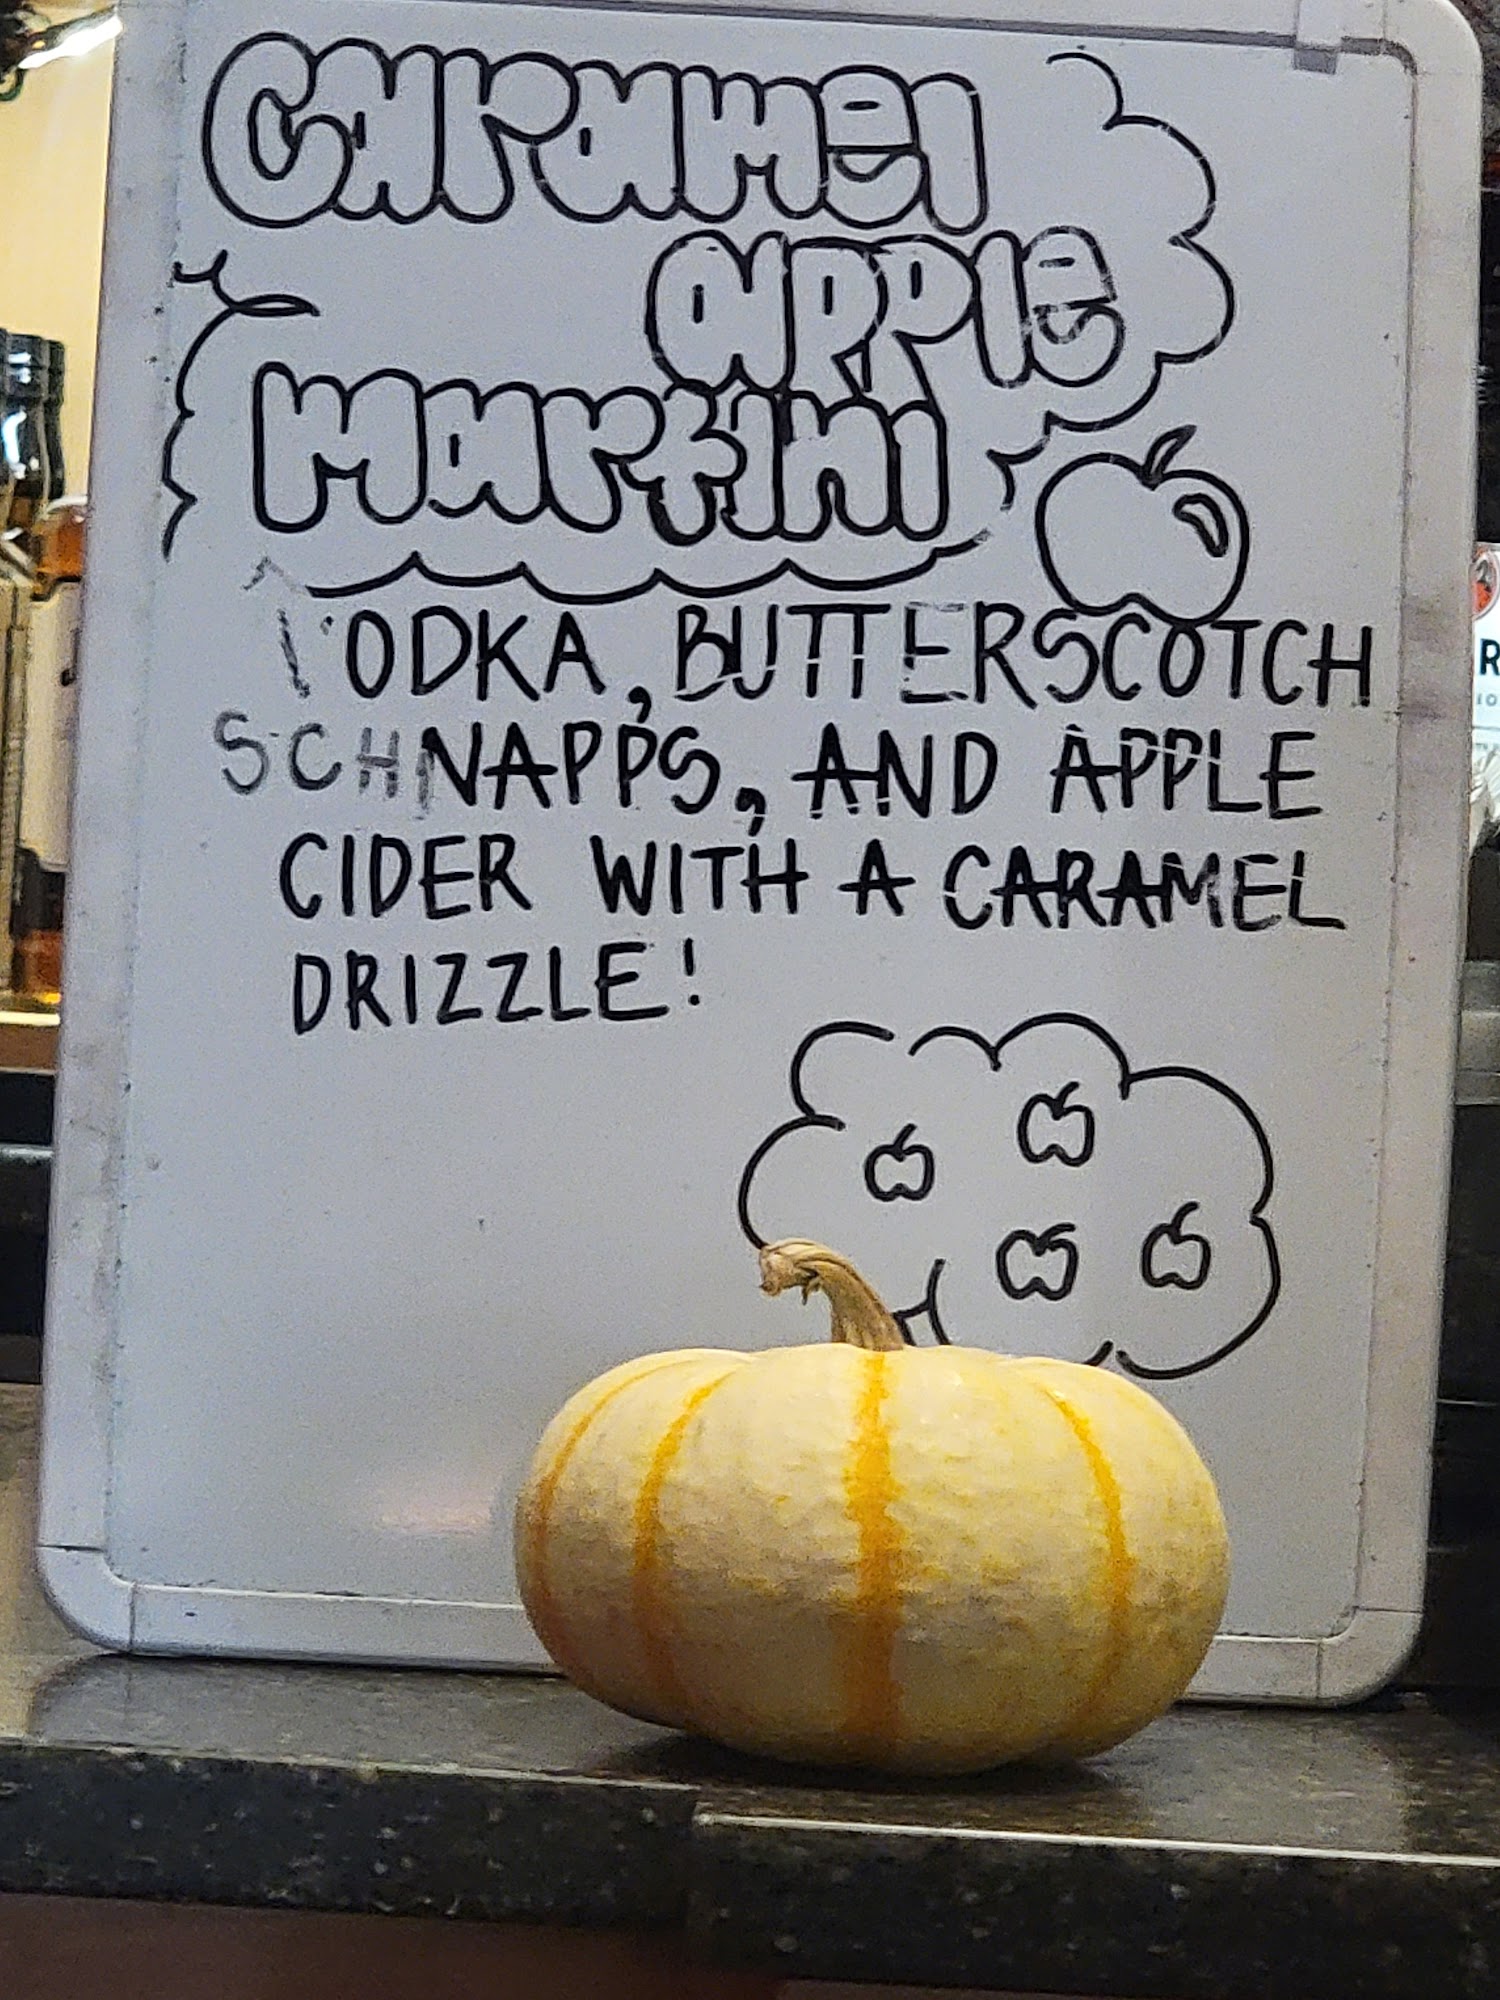 Caramel
apple
Martini
VODKA, BUTTERSCOTCH
SCHNAPPS, AND APPLE
CIDER WITH A CARAMEL
DRIZZLE!